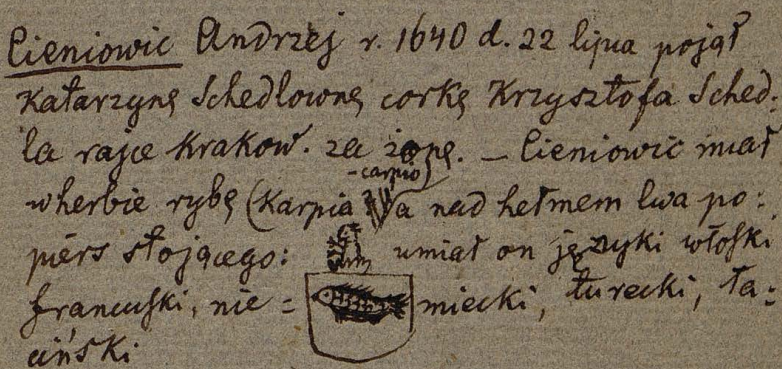 Cieniowic Andrzej r. 1640 d. 22 lipca pojął
Katarzynę Schedlownę corkę Krzysztofa Sched-
la rajce Krakow. za żonę. – Cieniowic miał
w herbie rybę (Karpia -carpio) a nad hełmem lwa po=
piers stojącego: umiał on języki włoski
francuski, nie= miecki, turecki, ła=
ciński